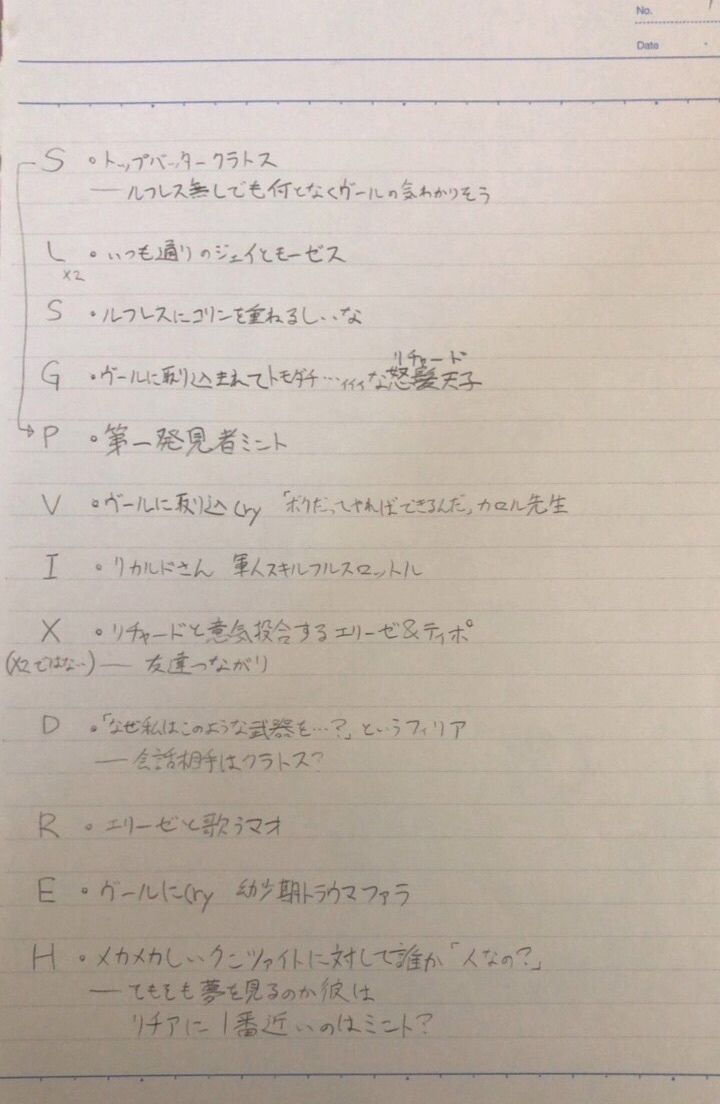 No.
Date
S ・トップバッタークラトス
― ルフレス無しでも何となくヴールの気わかりそう
L ・いつも通りのジェイとモーゼス
×2
S ・ルフレスにコリンを重ねるしいな
リチャード
G ・ヴールに取り込まれてトモダチ…ィィィな怒髪天子
P ・第一発見者ミント
V ・ヴールに取り込cry 「ボクだってやればできるんだ」カロル先生
I ・リカルドさん 軍人スキルフルスロットル
X ・リチャードと意気投合するエリーゼ&ティポ
(X2ではない) ― 友達つながり
D ・「なぜ私はこのような武器を…?」というフィリア
― 会話相手はクラトス?
R ・エリーゼと歌うマオ
E ・ヴールにcry 幼少期トラウマファラ
H ・メカメカしいクンツァイトに対して誰か「人なの?」
― てもそも夢を見るのか彼は
リチアに1番近いのはミント?